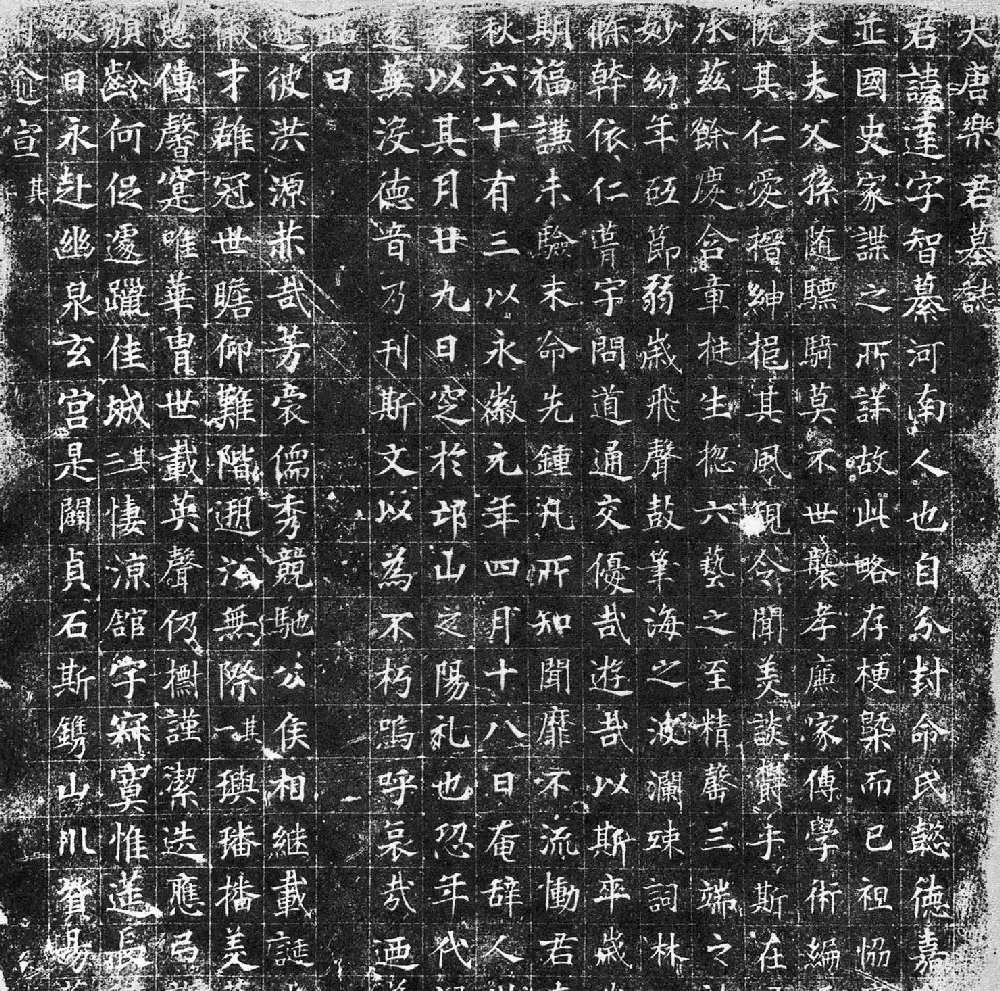 大唐樂君墓誌
君諱達字智慕河南人也自分封命民懿德嘉
並國史家諜之所詳故此略存梗槩而已祖
大夫父孫随驃騎莫不世襲孝廉家傳學術編
悦其仁愛搢紳挹其風覌令聞美談欝乎斯在
承茲餘慶含章挺生惚六藝之至精罄三端之
妙幼年砥節弱歳飛聲鼓筆海之波瀾竦詞林
幹依仁蒪宇問道通交優哉遊哉以斯卒歳
期福謙未驗末命先鍾凡所知聞靡不流慟君
秋六十有三以永徽元年四月十八日奄辞人
以其月廿九日窆於邙山之陽礼也恐年代
遠蕪没德音乃刊斯文以為不朽嗚呼哀哉迺
銘曰
遐彼洪源恭哉芳裔儒秀競馳公侯相継載誕
徽才雄冠世瞻仰難階無際其一璵璠播美
傳馨寔唯華胄世載英聲仍謹潔迭應弓
頽齡何促遽躡佳城其二悽涼舘宇寂寞惟莚長
日永赴幽泉玄宫是闢貞石斯鐫山川貿易
宣其